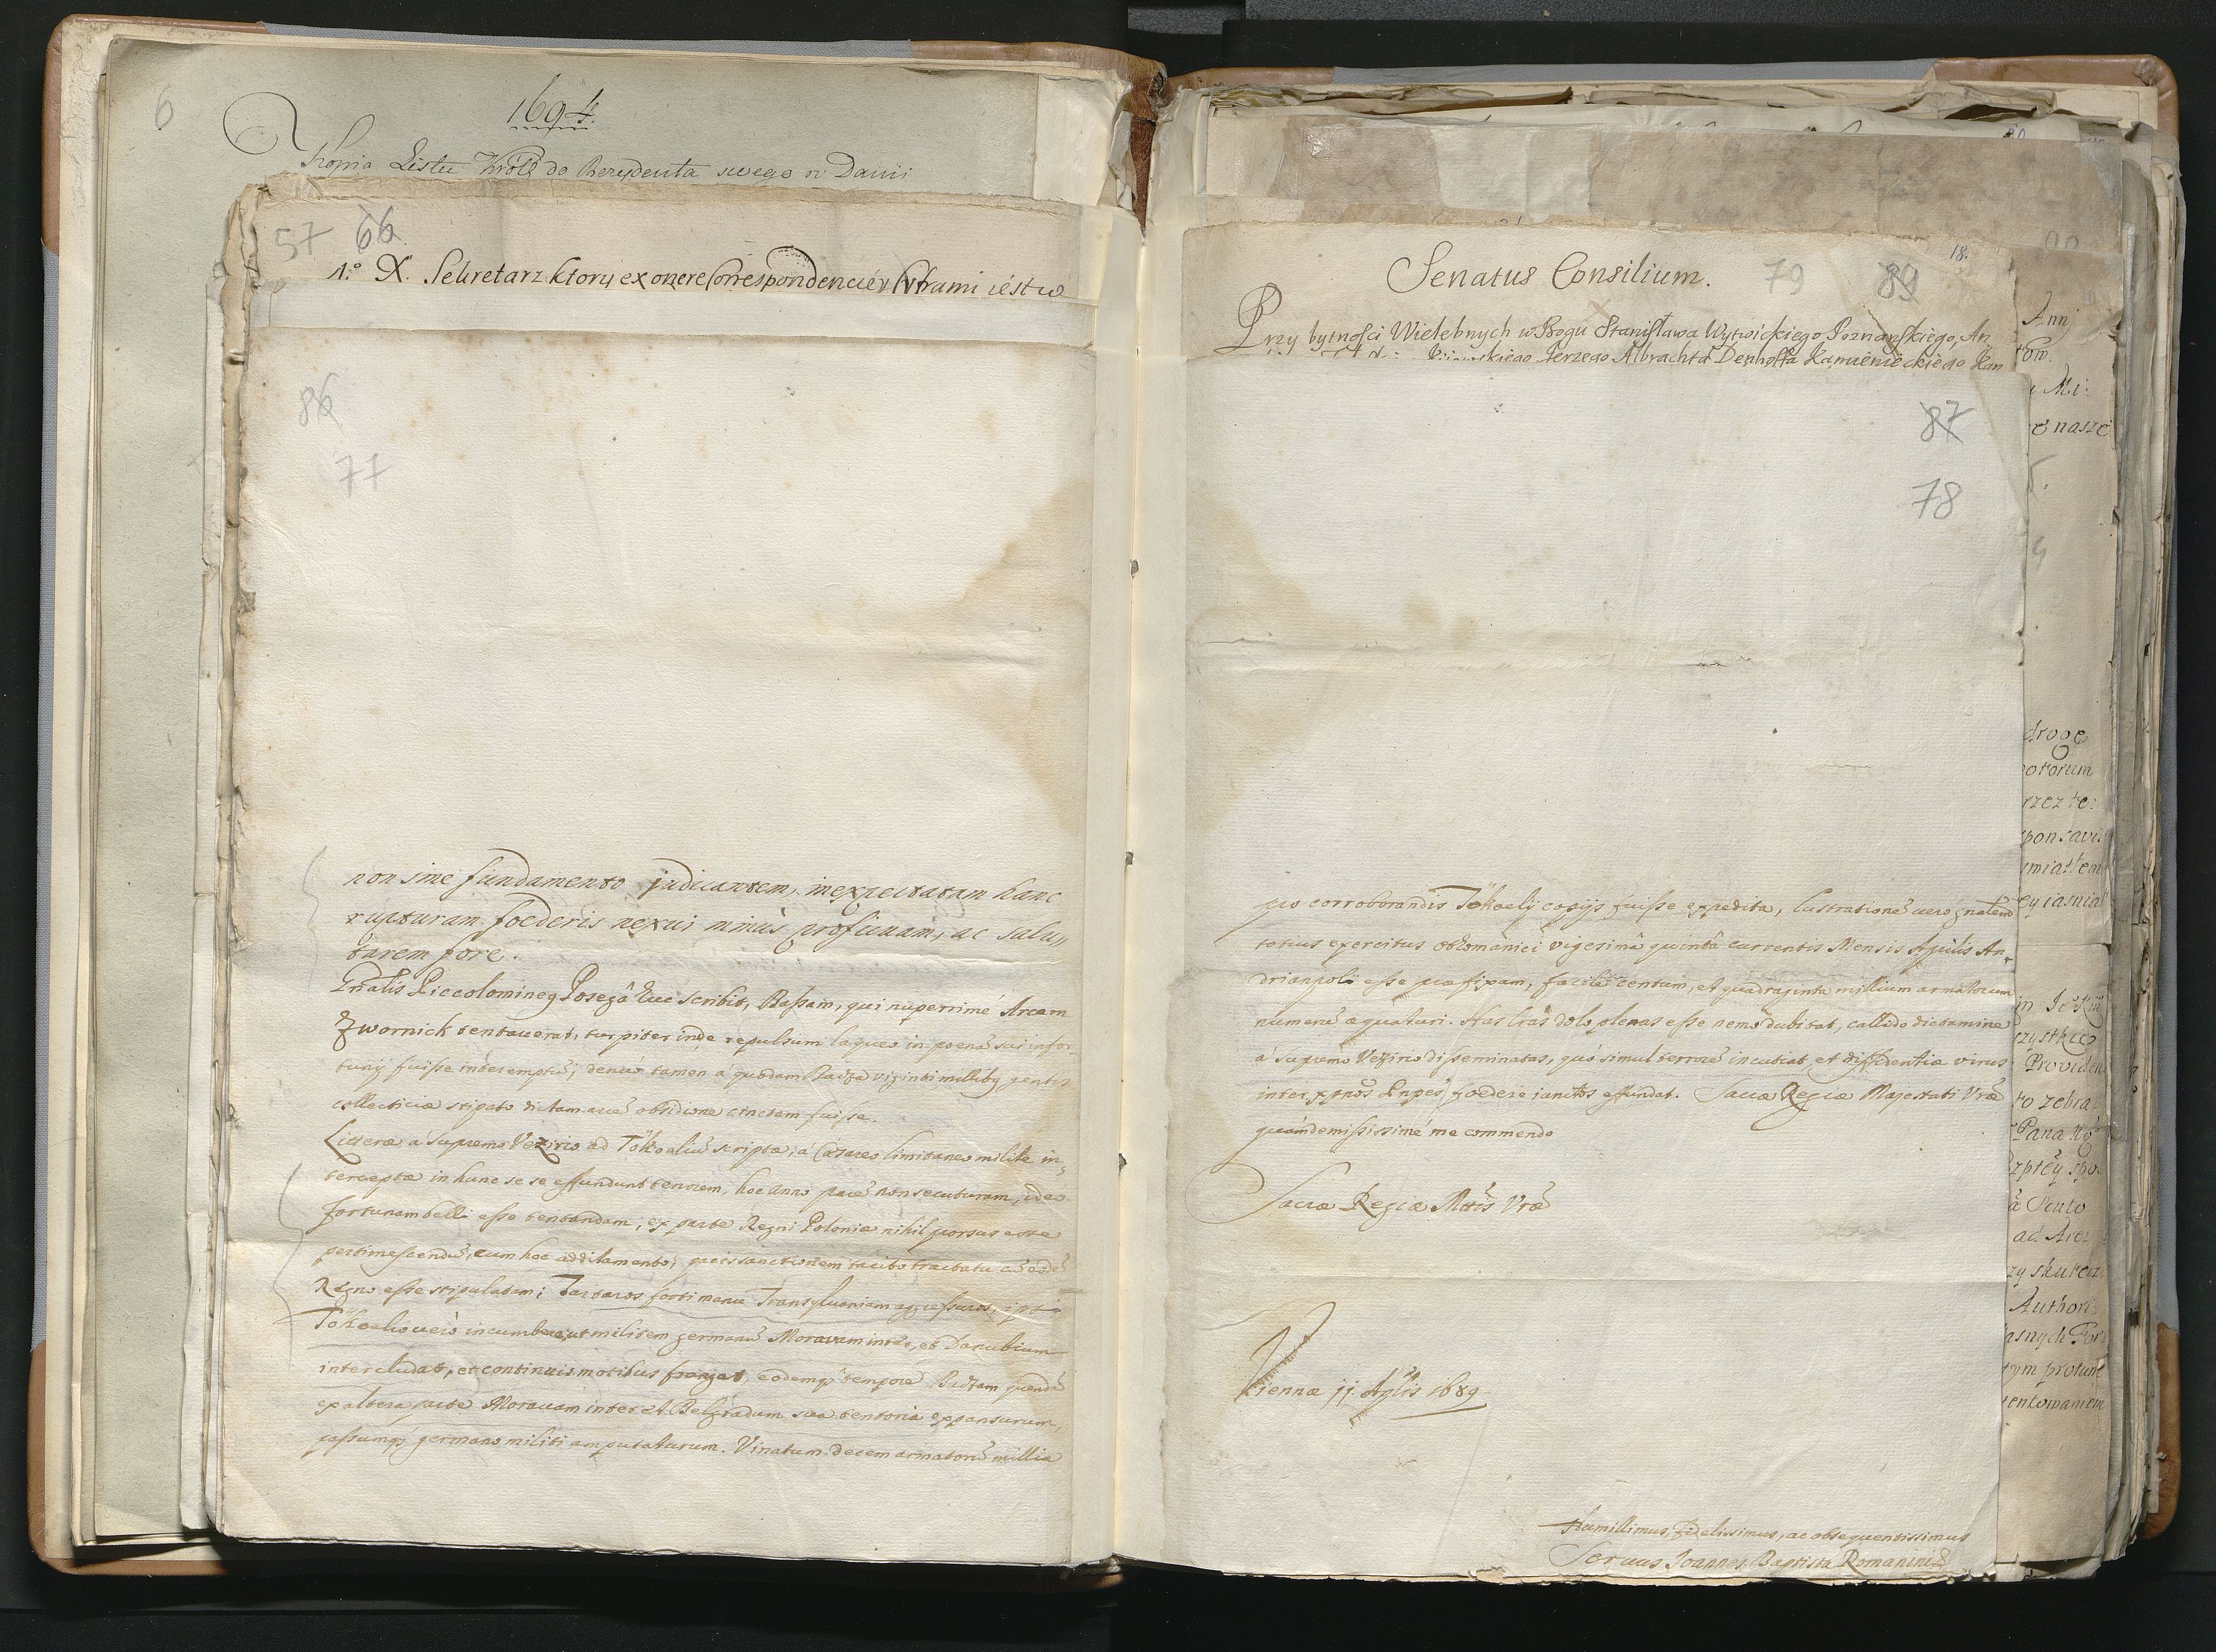 6
1694.
Kopia Listu Króla do Rezydenta swego w Danii
57 66
1.° X. Sekretarz ktory ex onere Correspondenciey iest w
86
77
non sine fundamento judicantem, inexpectatam hanc
rupturam foederis nexui minùs proficuam, ac salu„
tarem fore.
Gnãlis Piccolomineg Posegâ huc scribit, Bassam, qui nuperrimé Arcem
Zwornick tentauerat, turpiter inde repulsum laqueo in poenã sui infor„
tunij fuisse interemptũ; denuò tamen a quodam Bassa viginti millibg gentis
collecticiæ stipato dictam arcẽ obsidione cinctam fuisse.
Litteræ a supremo Vezirio ad Tököaliũ scriptæ, a Cæsareo limitaneo milite in„
terceptæ in hunc se se effundunt tenorem, hoc anno pacẽ non secuturam, ideò
fortunam belli esse tentandam, ex parte Regni Poloniæ nihil porsus esse
pertimescendũ, cum hoc additamento, pacis sanctionem tacito tractatu cũ eodẽ
Regno esse stipulatam; Tartaros forti manu Transyluaniam aggressuros, ipsi
Tököelio uerò incumbere, ut militem germanũ Moravam inter, et Danubium
intercludat, et continuis motibus frangat, eodemq tempore Bassam quendã
ex altera parte Morauam inter et Belgradum sua tentoria expansurum,
passumq germano militi amputaturum. Vinatum decem armatorũ millia
Senatus Consilium. 79 89 18.
Przy bytności Wielebnych w Bogu Stanisława Wytwickiego Poznanskiego, An„
Kijowskiego Jerzego Albrachta Denhoffa Kamienieckiego Kan
87
78
pro corroborandis Tökoelij copijs fuisse expedita, lustrationẽ uerò gnãlem
totius exercitus ottomanici vigesimâ quintâ currentis Mensis Aprilis An„
drianpoli esse præfixam, facilè centum, et quadraginta millium armatorum
numerũ æquaturi. Has lrãs dolo plenas esse nemo dubitat, callido dictamine
à supremo Vezirio disseminatas, quò simul terrorẽ incutiat, et diffidentiæ virus
inter xpnõs Pnpes foedere iunctos effundat. Sacræ Regiæ Majestati Vræ
quàm demississimé me commendo
Sacræ Regiæ Mttis Vræ
Viennæ 11. Aplis 1689
Humillimus, fidelissimus, ac obsequentissimus
Seruus Joannes Baptista Romanini
Annj
e nasze
droge
otorum
rzez te
ponsavis
Providen
to zebra
Pana
ad Arcz
zy skutecz
Authori
asnych For
entowaniem